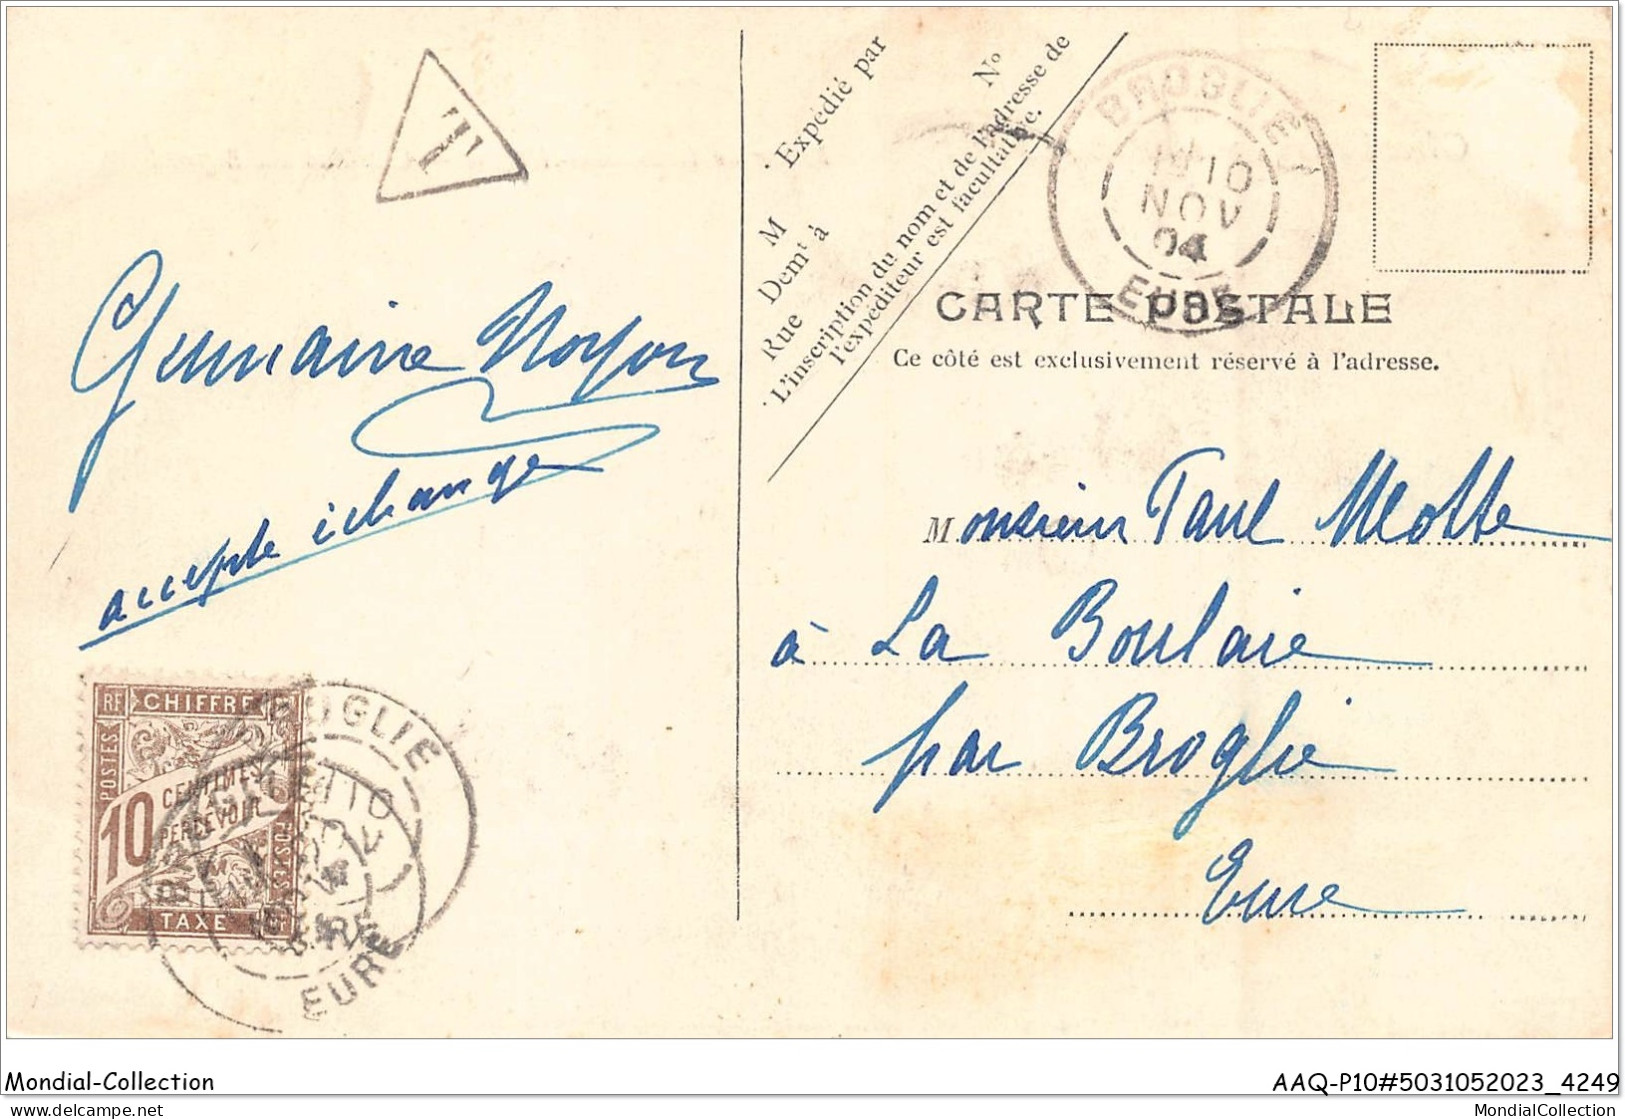 T
Expédié par
M
Demt à
Rue
No
L'inscription du nom et de l'adresse de
l'expéditeur est facultative.
BROGLIE
10
NOV
04
EURE
CARTE POSTALE
Ce côté est exclusivement réservé à l'adresse.
Germaine Noyon
accepte échange
Monsieur Paul Motte
à La Boulaie
par Broglie
Eure
RF CHIFFRE
POSTES
10 CENTIMES
PERCEVOIR
TAXE
BROGLIE
10
EURE
Mondial-Collection
AAQ-P10#5031052023_4249
www.delcampe.net
MondialCollection